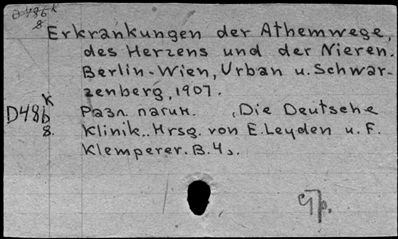 Erkrankungen der Athemwege,
des Herzens und der Nieren.
Berlin-Wien, Urban u. Schwar-
zenberg, 1907.
D48b K
8.
Разл. пагин. (Die Deutsche
Klinik.. Hrsg. von E. Leyden u. F.
Klemperer. B. 4).